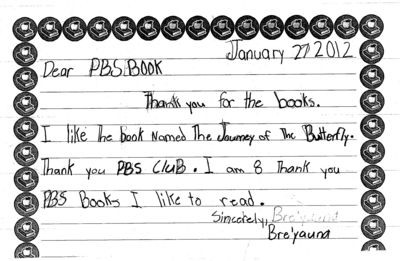 January 27 2012
Dear PBS BOOK
Thank you for the books.
I like The book Named The Journey of The Butterfly.
Thank you PBS CluB. I am 8 Thank you
PBS Books I like to read.
Sincerely, Bre'yauna
Bre'yauna